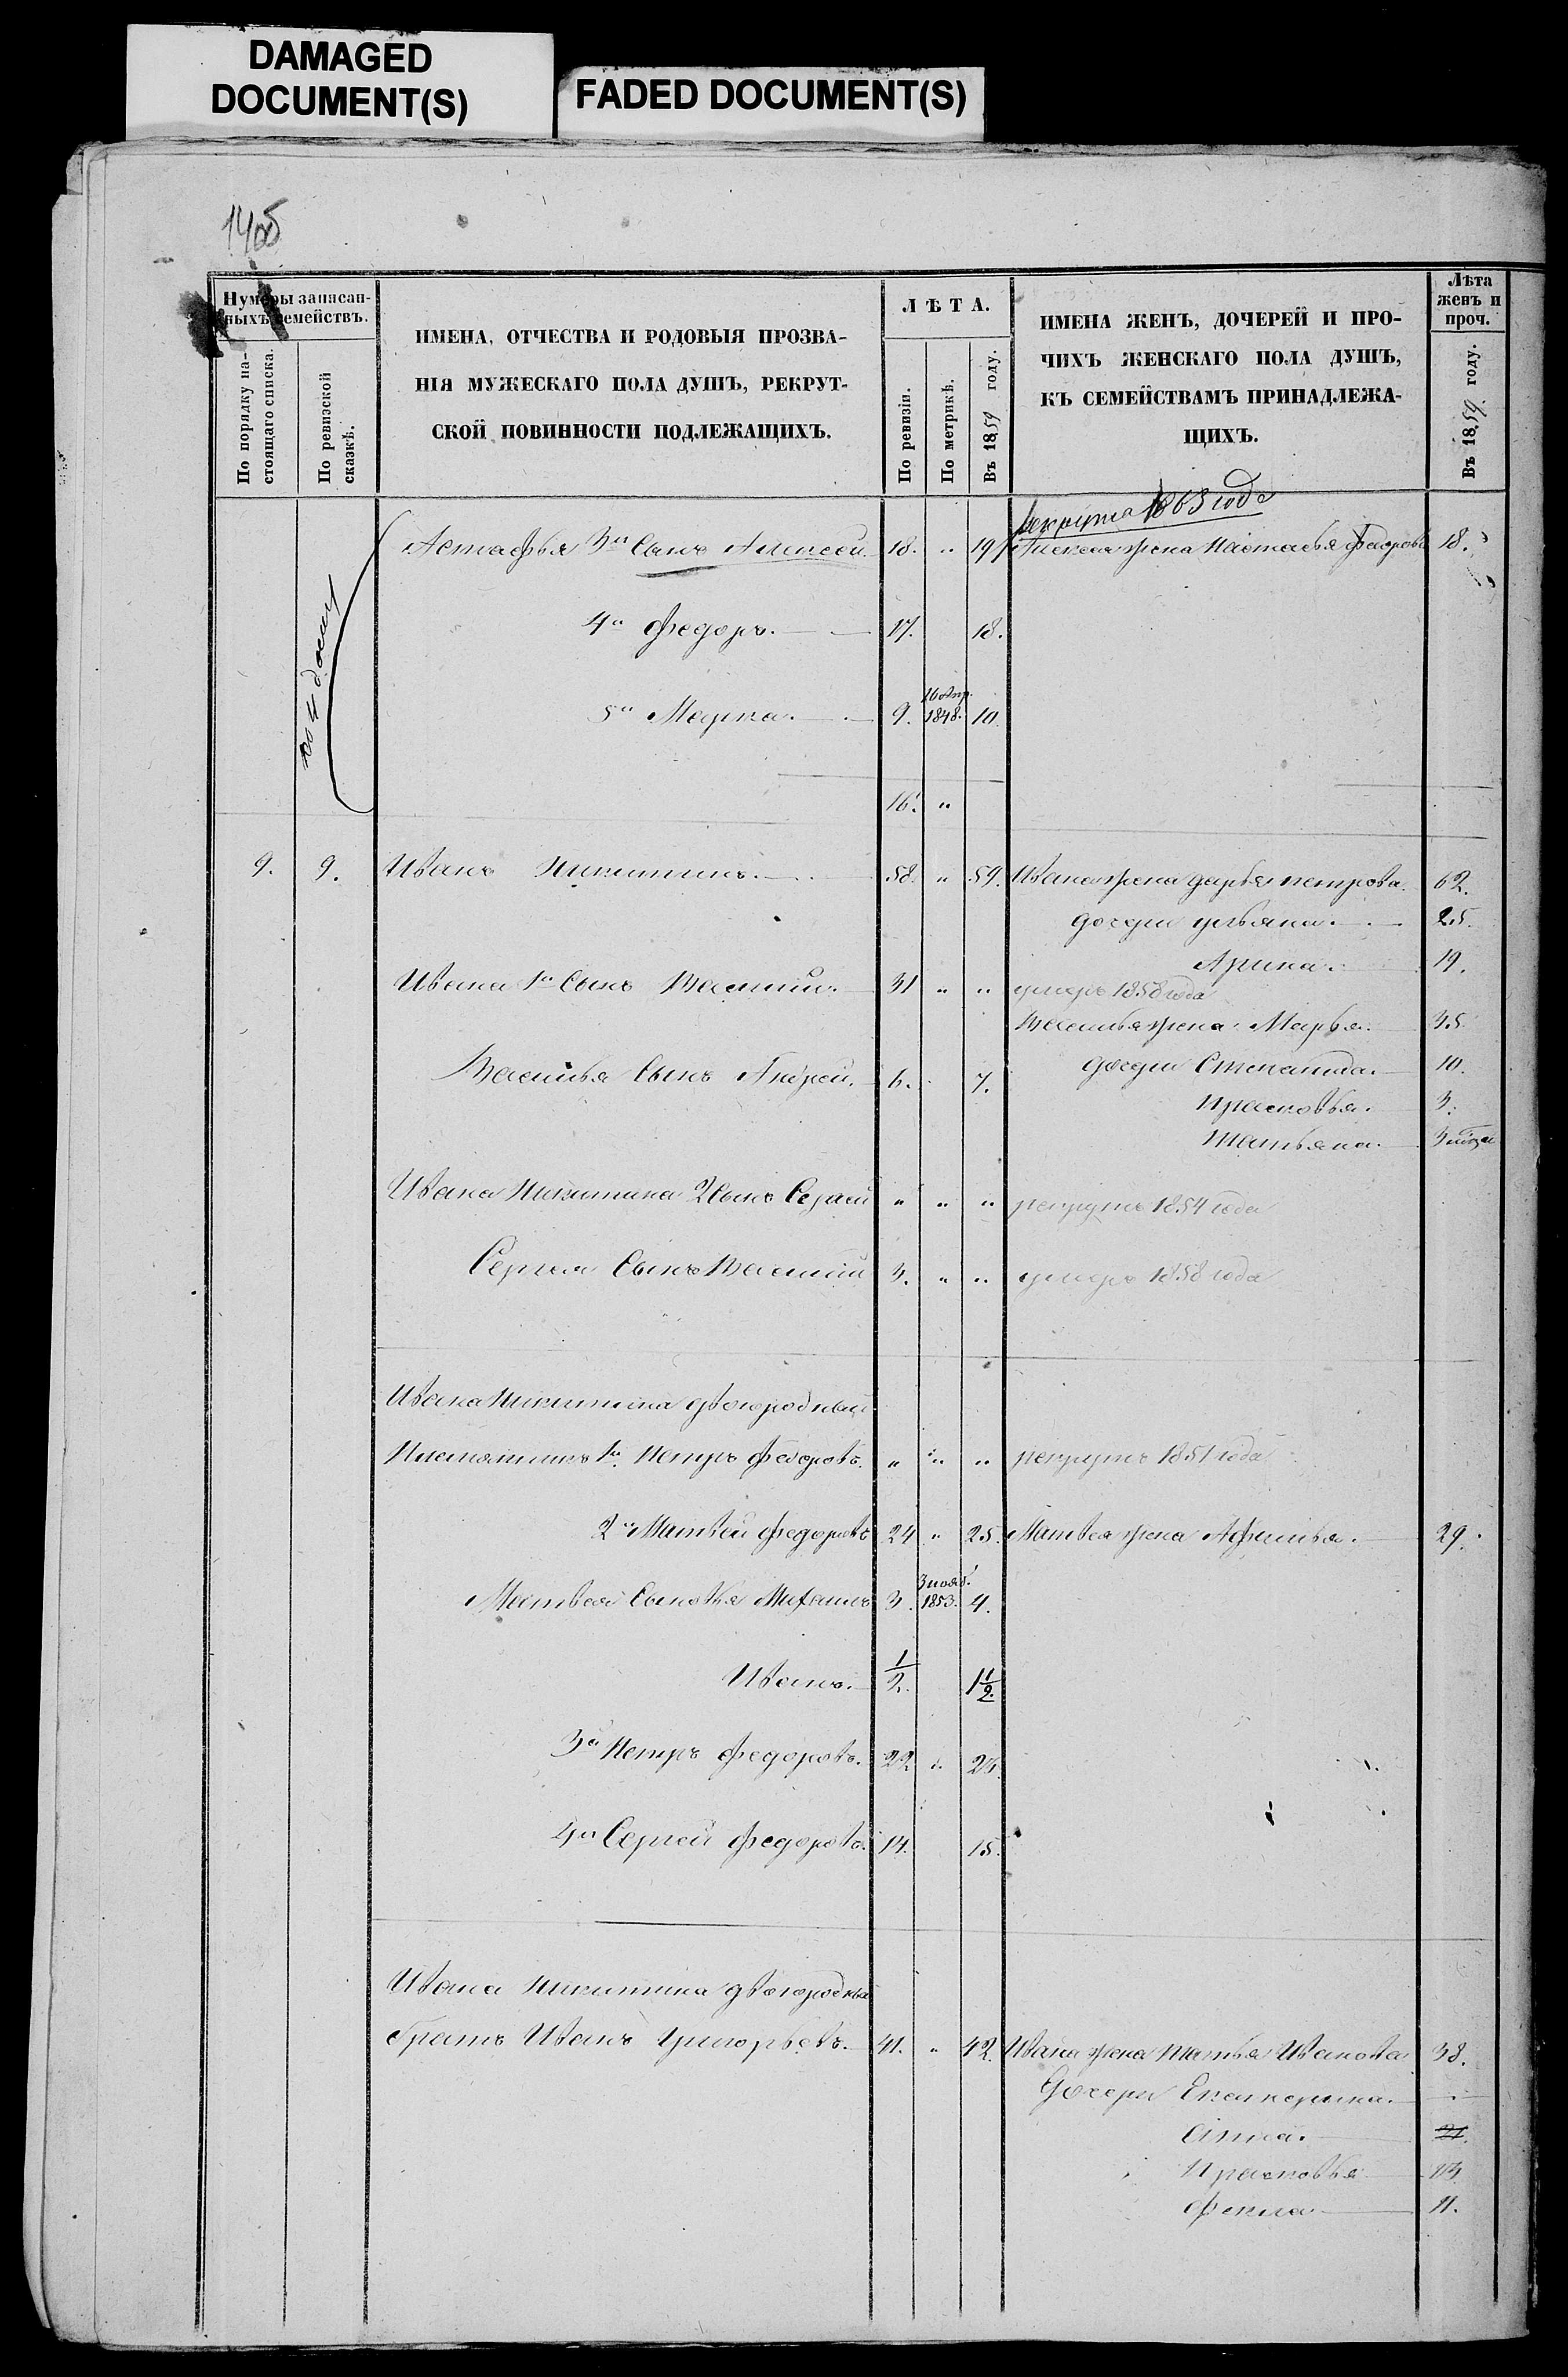 DAMAGED
DOCUMENT(S)
FADED DOCUMENT(S)
Нумеры записан-
ныхъ семействъ.
По порядку на-
стоящаго списка.
По ревизской
сказкѣ.
ИМЕНА, ОТЧЕСТВА И РОДОВЫЯ ПРОЗВА-
НІЯ МУЖЕСКАГО ПОЛА ДУШЪ, РЕКРУТ-
СКОЙ ПОВИННОСТИ ПОДЛЕЖАЩИХЪ.
ЛѢТА.
По ревизіи.
По метрикѣ.
Въ 1859 году.
ИМЕНА ЖЕНЪ, ДОЧЕРЕЙ И ПРО-
ЧИХЪ ЖЕНСКАГО ПОЛА ДУШЪ,
КЪ СЕМЕЙСТВАМЪ ПРИНАДЛЕЖА-
ЩИХЪ.
Лѣта
женъ и
проч.
Въ 1859 году.
1863 года
Астафья 3й Сынъ Алексей 18. " 19 Алексея жена Настасья Федорова 18.
4й Федоръ. 17. 18.
16 Апр.
5й Марка. 9. 1848. 10.
16. "
9. 9. Иванъ Никитинъ. 58. " 59. Ивана жена Дарья Петрова. 62.
дочери Ульяна. 25.
Арина. 19.
Ивана 1й Сынъ Василий. 31 " " умеръ 1858 года
Василья жена Марья. 35.
Василья Сынъ Андрей. 6. 7. дочери Степанида. 10.
Прасковья. 3.
Татьяна.
Ивана Никитина 2 Сынъ Сергей " " " рекрутъ 1854 года
Сергея Сынъ Василий 3. " " умеръ 1858 года
Ивана Никитина двоюродный
Племянникъ 1й Петръ Федоровъ. " " " рекрутъ 1851 года
2й Матвей Федоровъ 24 " 25. Матвея жена Афимья. 29.
3 нояб.
Матвея Сыновья Михаилъ 3. 1853. 4.
Иванъ. 1/2. 1 1/2.
3й Петръ Федоровъ. 22 " 23.
4й Сергей Федоровъ. 14. 15.
Ивана Никитина двоюродный
братъ Иванъ Григорьевъ. 41. " 42. Ивана жена Марья Иванова 38.
Дочери Екатерина.
Анна. 21.
Прасковья 13
Фекла 11.